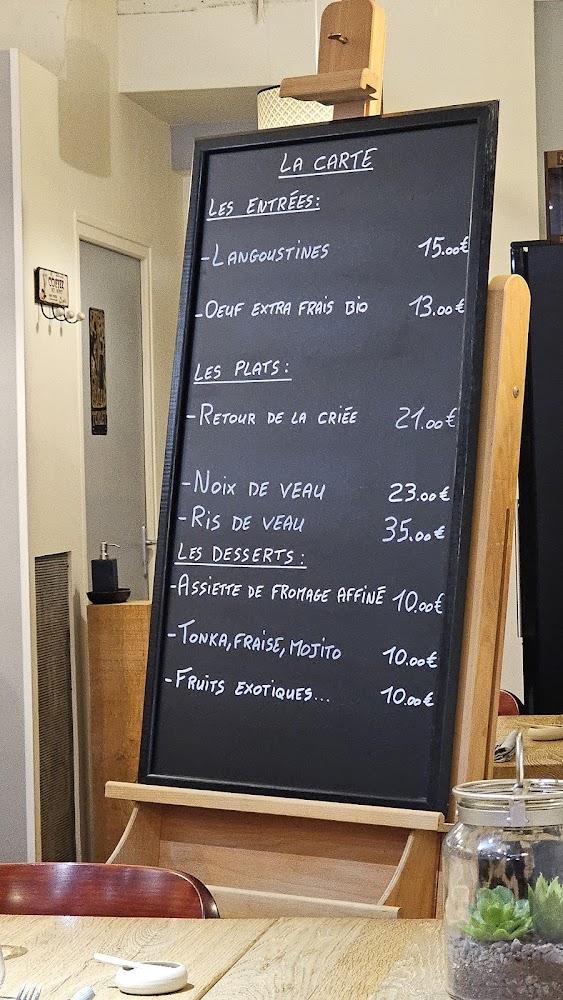 LA CARTE
LES ENTRÉES:
-LANGOUSTINES 15.00€
-OEUF EXTRA FRAIS BIO 13.00€
LES PLATS:
-RETOUR DE LA CRIÉE 21.00€
-NOIX DE VEAU 23.00€
-RIS DE VEAU 35.00€
LES DESSERTS:
-ASSIETTE DE FROMAGE AFFINÉ 10.00€
-TONKA, FRAISE, MOJITO 10.00€
-FRUITS EXOTIQUES... 10.00€
COFFEE